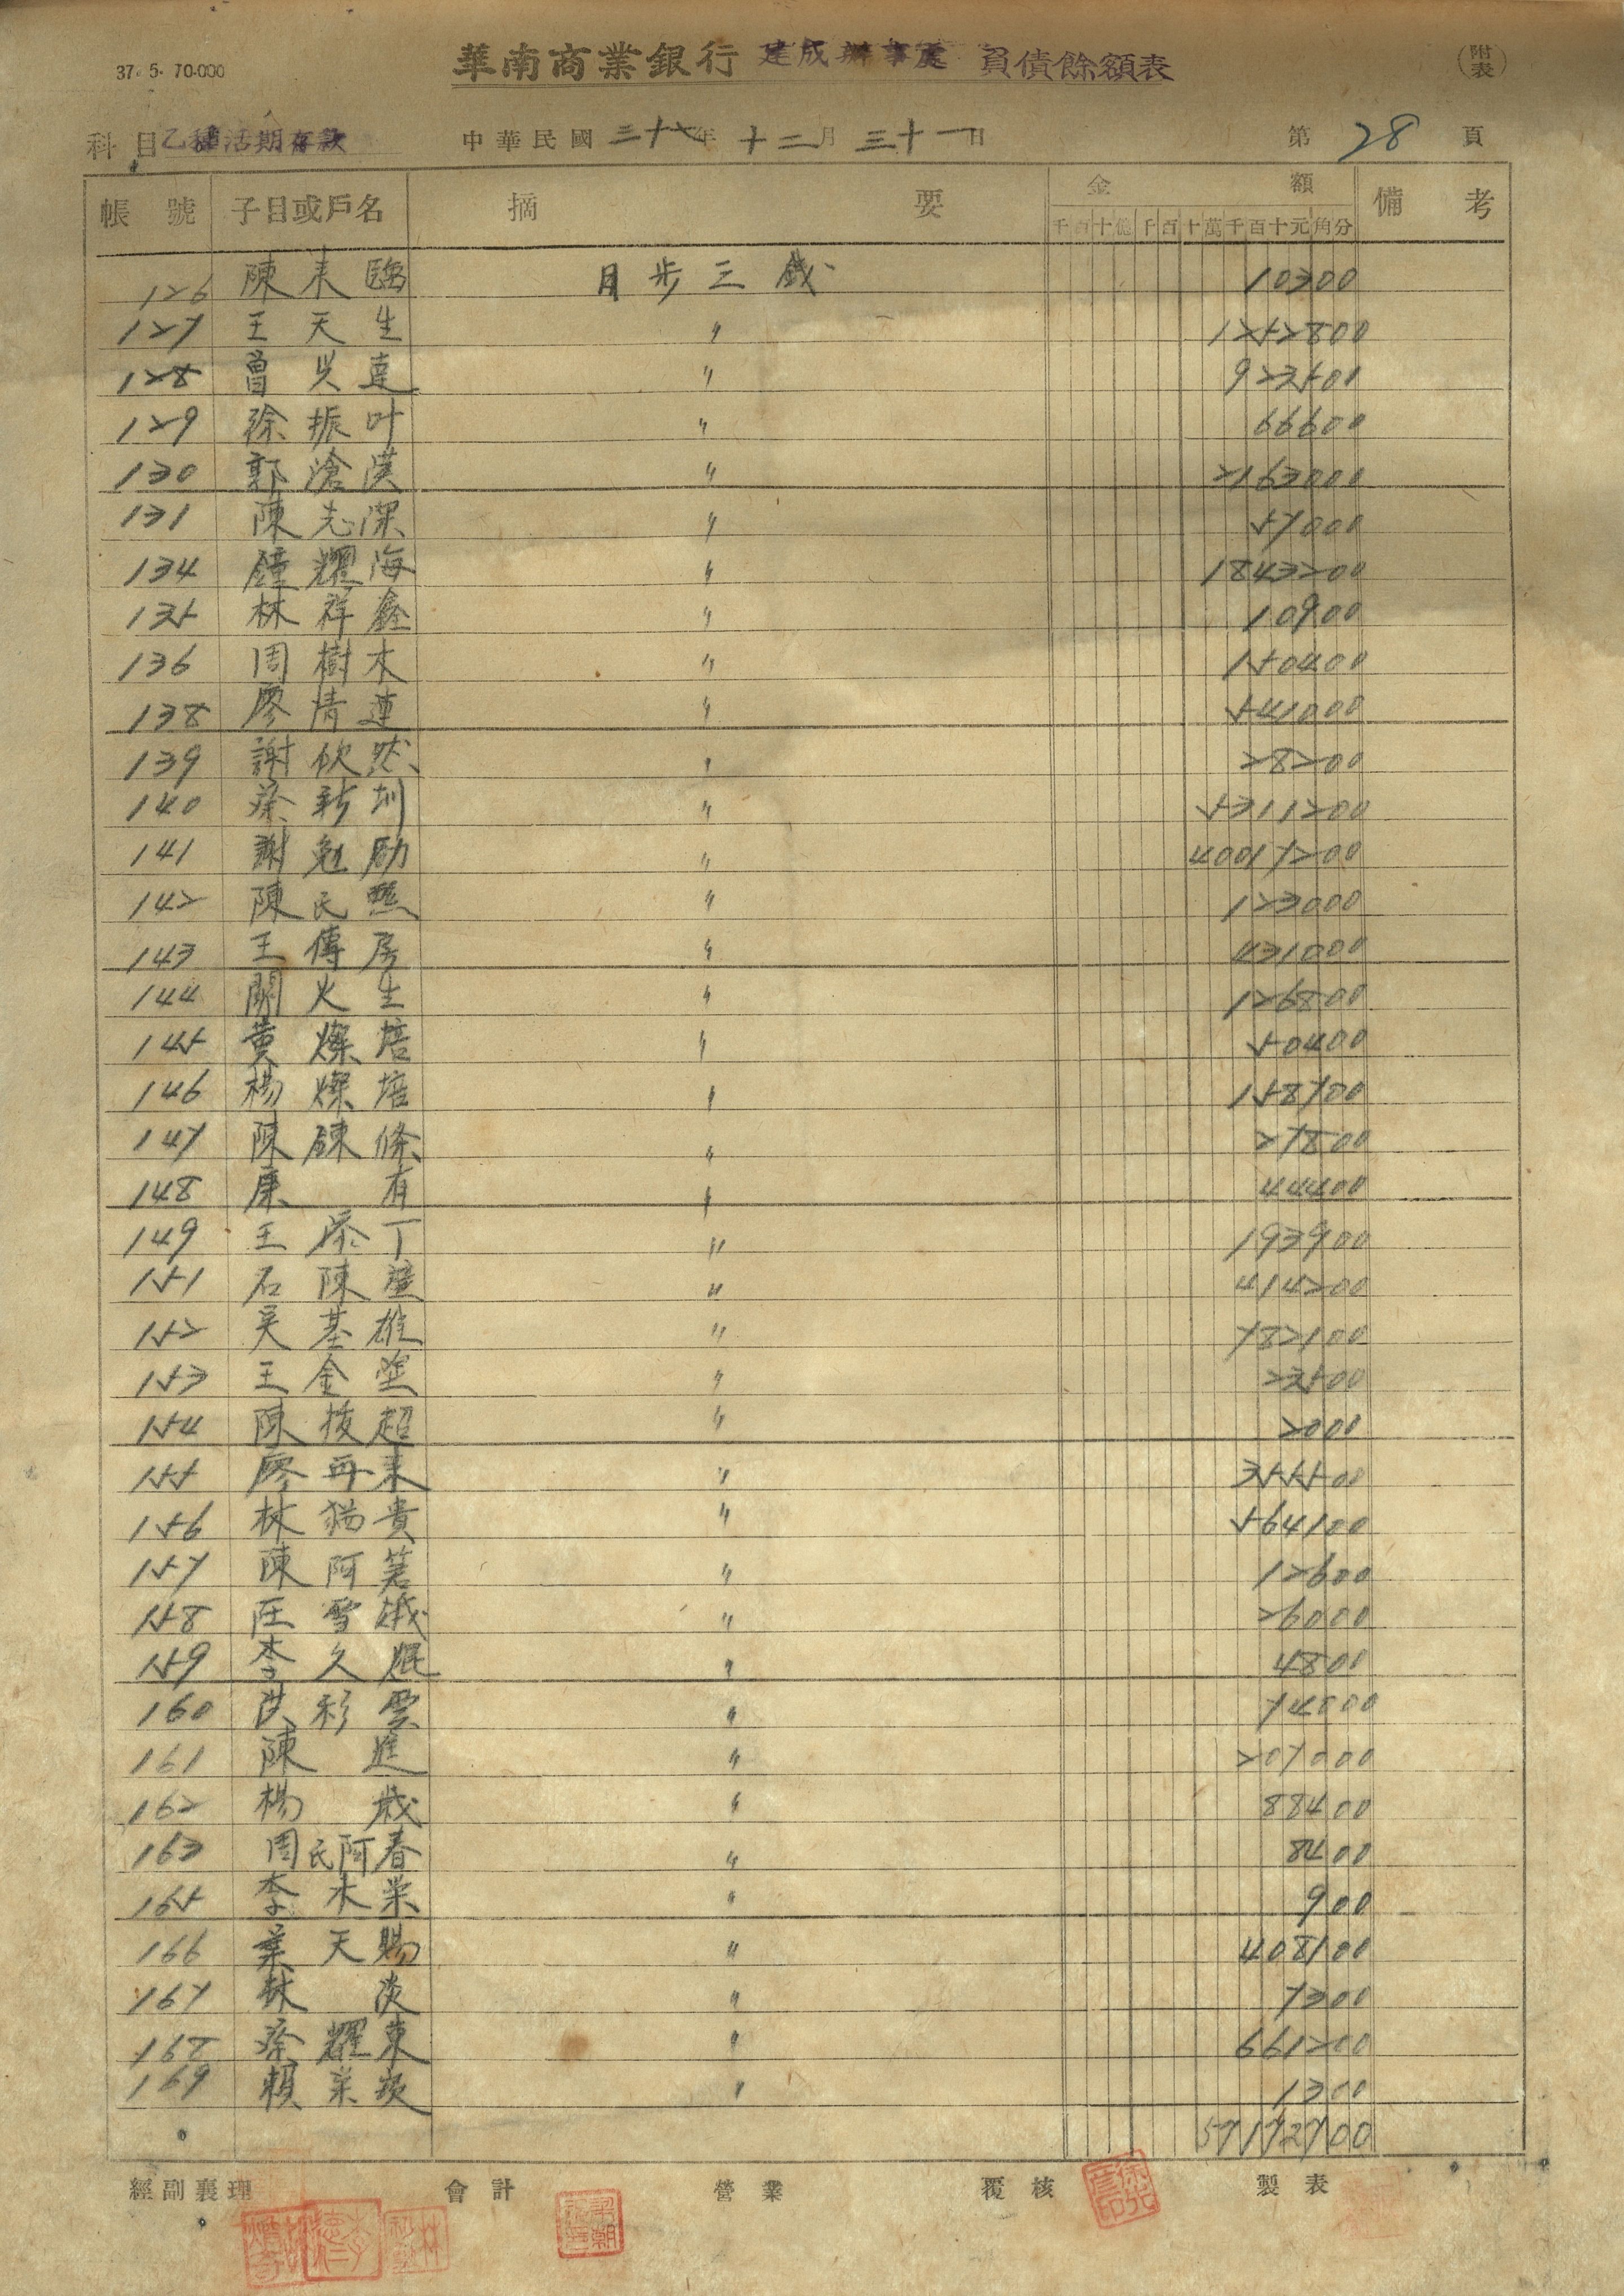 37. 5. 70.000
華南商業銀行 建成辦事處 負債餘額表 (附表)
科目 乙種活期存款 中華民國三十七年十二月三十一日 第28頁
帳號 子目或戶名 摘要 金額 備考
千百十億千百十萬千百十元角分
126 陳來臨 日步三戔 10300
127 王天生 〃 1252800
128 曾吳連 〃 923500
129 徐振叶 〃 66600
130 郭滄漢 〃 2163000
131 陳志深 〃 57000
134 鐘耀海 〃 1843200
135 林祥鑫 〃 10900
136 周樹木 〃 150400
138 廖清蓮 〃 541000
139 謝欣然 〃 28200
140 蔡新圳 〃 5311200
141 謝勉励 〃 40017200
142 陳民照 〃 123000
143 王傳房 〃 431000
144 關火生 〃 126800
145 黄燦培 〃 50400
146 楊燦培 〃 158700
147 陳鍊條 〃 27800
148 康有 〃 44400
149 王添丁 〃 193900
151 石陳 〃 414200
152 吴基雄 〃 782100
153 王金 〃 23500
154 陳拔超 〃 2000
155 廖再來 〃 355500
156 林猫貴 〃 564100
157 陳阿 〃 12600
158 汪雪娥 〃 26000
159 李久 〃 4800
160 洪彩雲 〃 74000
161 陳進 〃 207000
162 楊 〃 88400
163 周氏阿春 〃 8400
165 李木榮 〃 900
166 葉天賜 〃 408100
167 林淡 〃 7300
168 蔡耀東 〃 661200
169 賴榮炎 〃 1300
57172700
經副襄理 會計 營業 覆核 製表